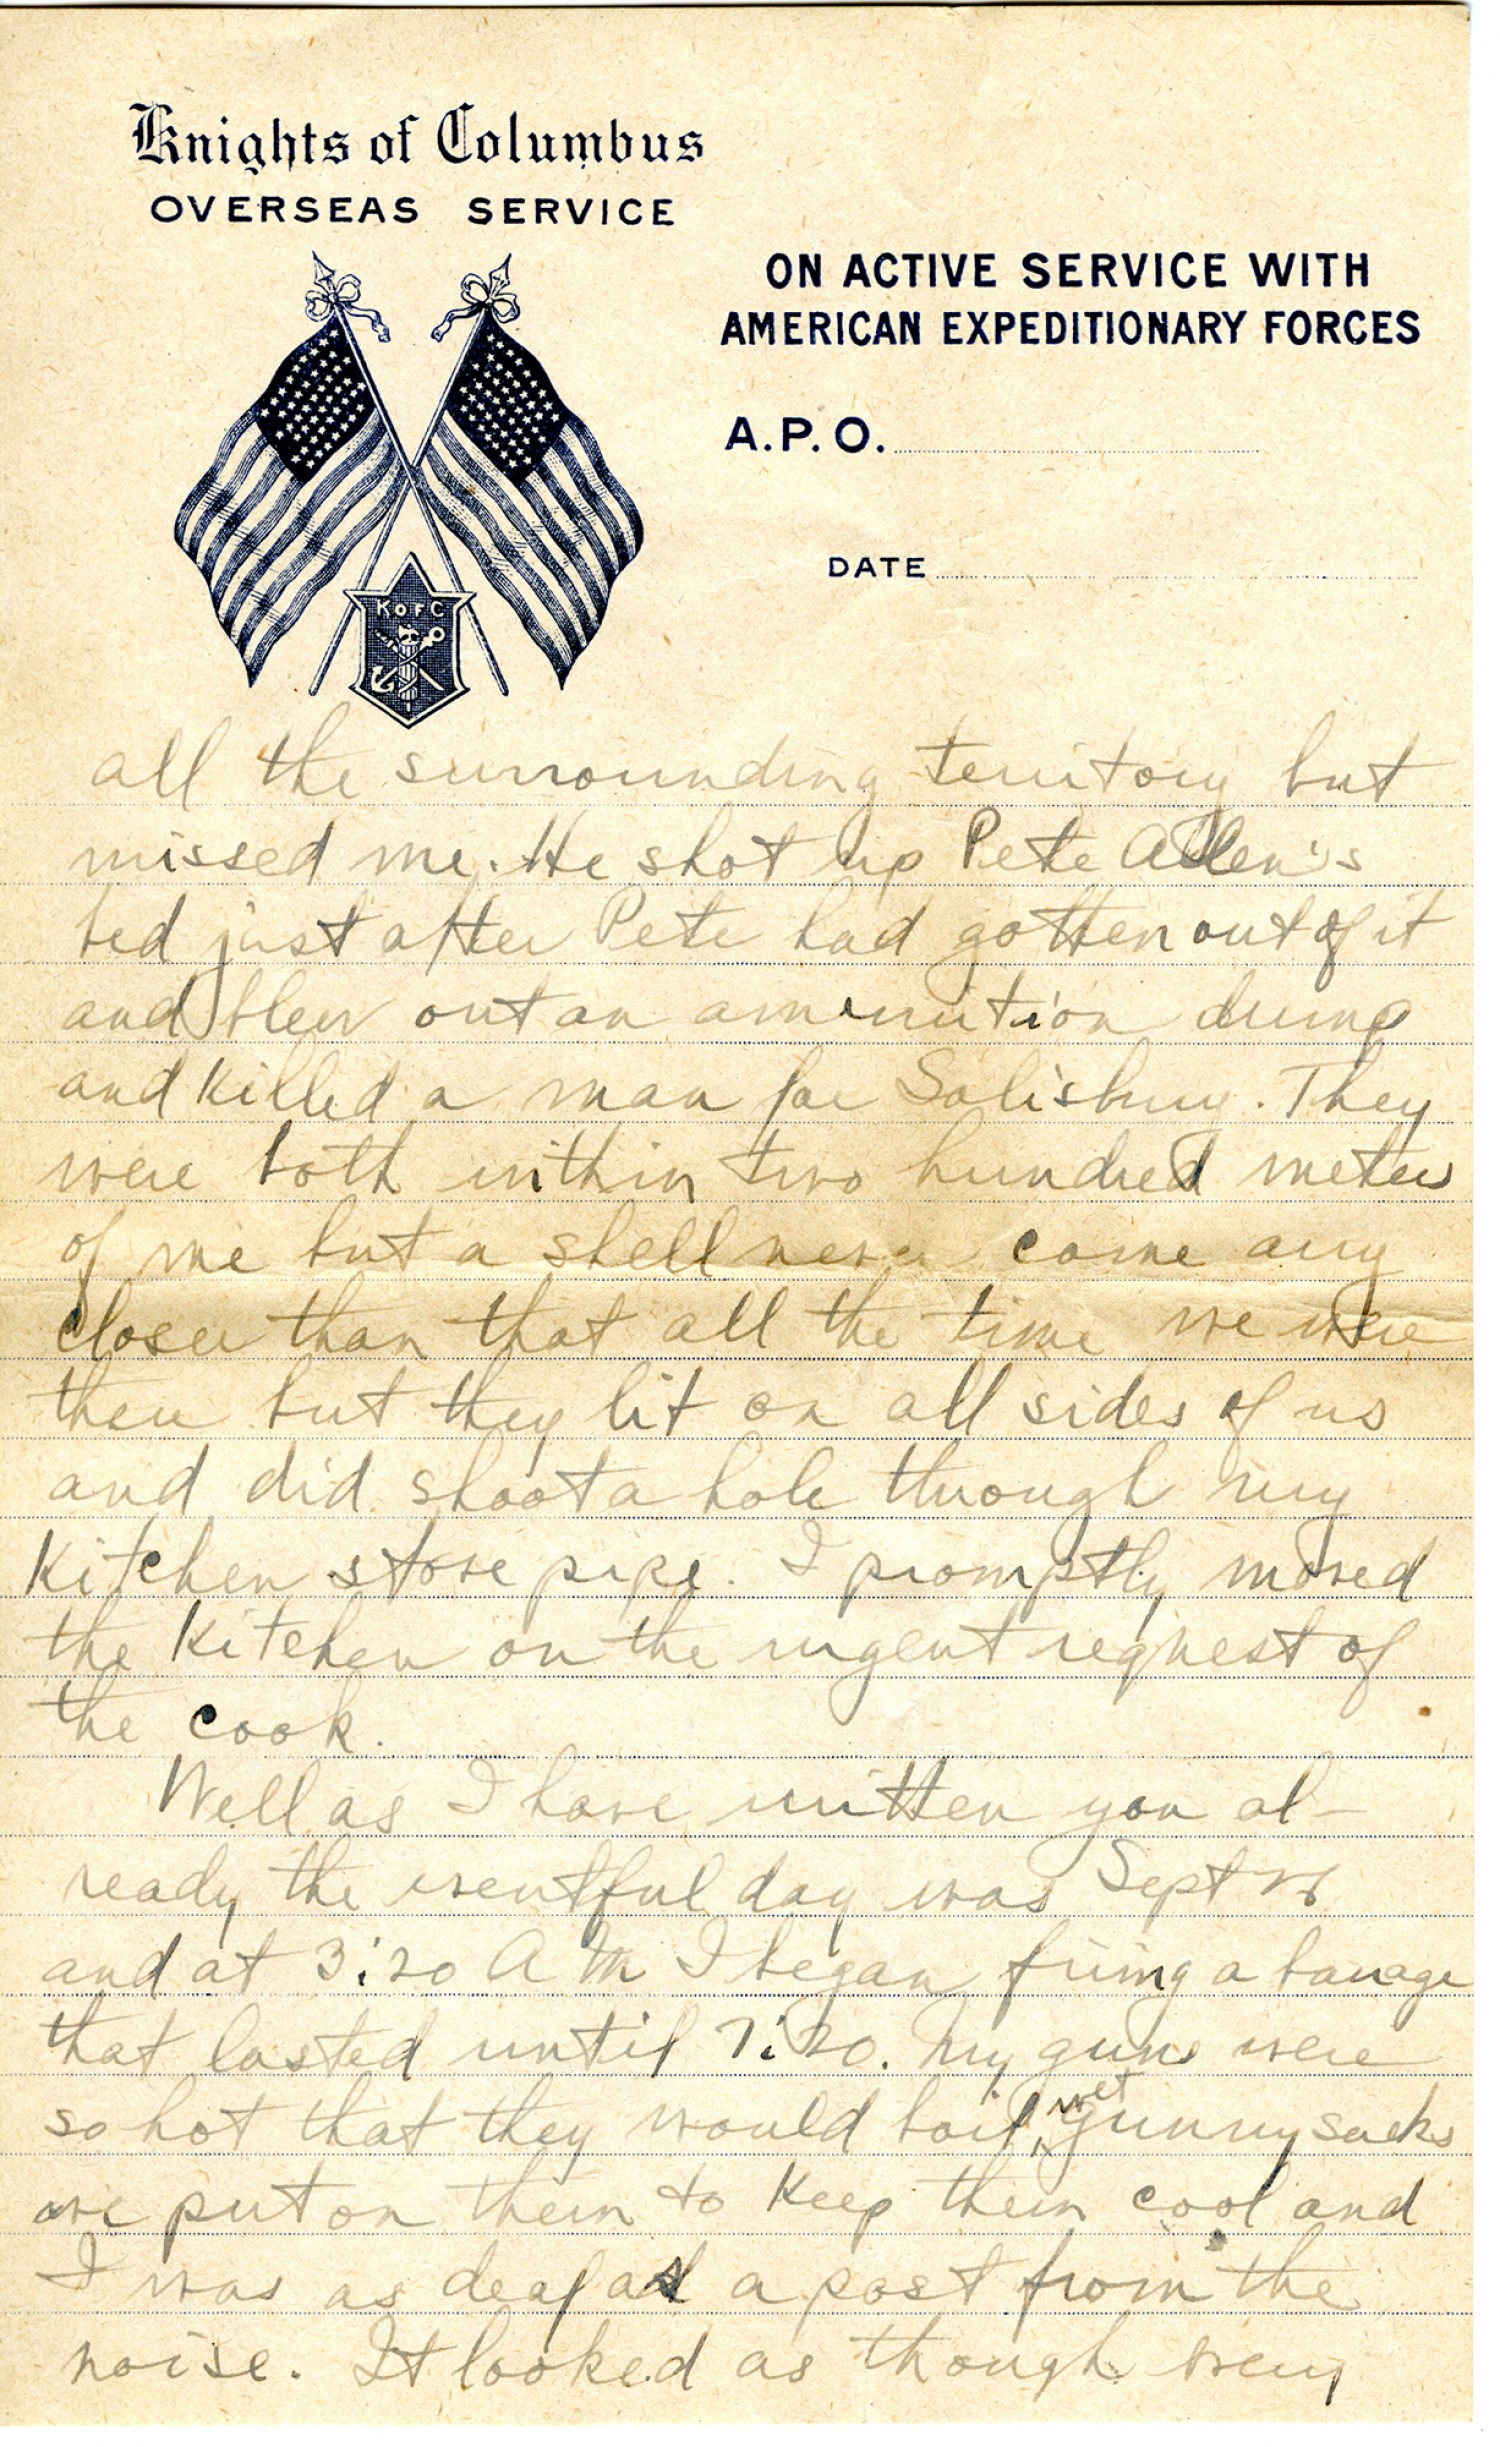 Knights of Columbus
OVERSEAS SERVICE
ON ACTIVE SERVICE WITH
AMERICAN EXPEDITIONARY FORCES
A.P.O.
DATE
K OF C
all the surrounding territory but
missed me. He shot up Pete Allen's
bed just after Pete had gotten out of it
and blew out an amunition dump
and killed a man for Salisbury. They
were both within two hundred meters
of me but a shell never come any
closer than that all the time we were
there but they lit on all sides of us
and did shoot a hole through my
kitchen stove pipe. I promptly moved
the kitchen on the urgent request of
the cook.
Well as I have written you al-
ready the eventful day was Sept 26
and at 3:20 A M I began firing a barage
that lasted until 7:20. My guns were
so hot that they would boil wet gunny sacks
we put on them to keep them cool and
I was as deaf as a post from the
noise. It looked as though every